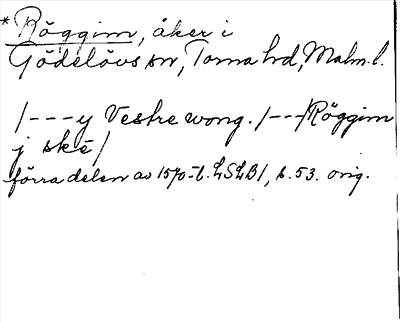 *Röggim, åker i
Gödelövs sn, Torna hd, Malm. l.
/---y Vestre wong. /---/Röggim
j skē/
förra delen av 1570-t. LSLB1, s. 53. orig.